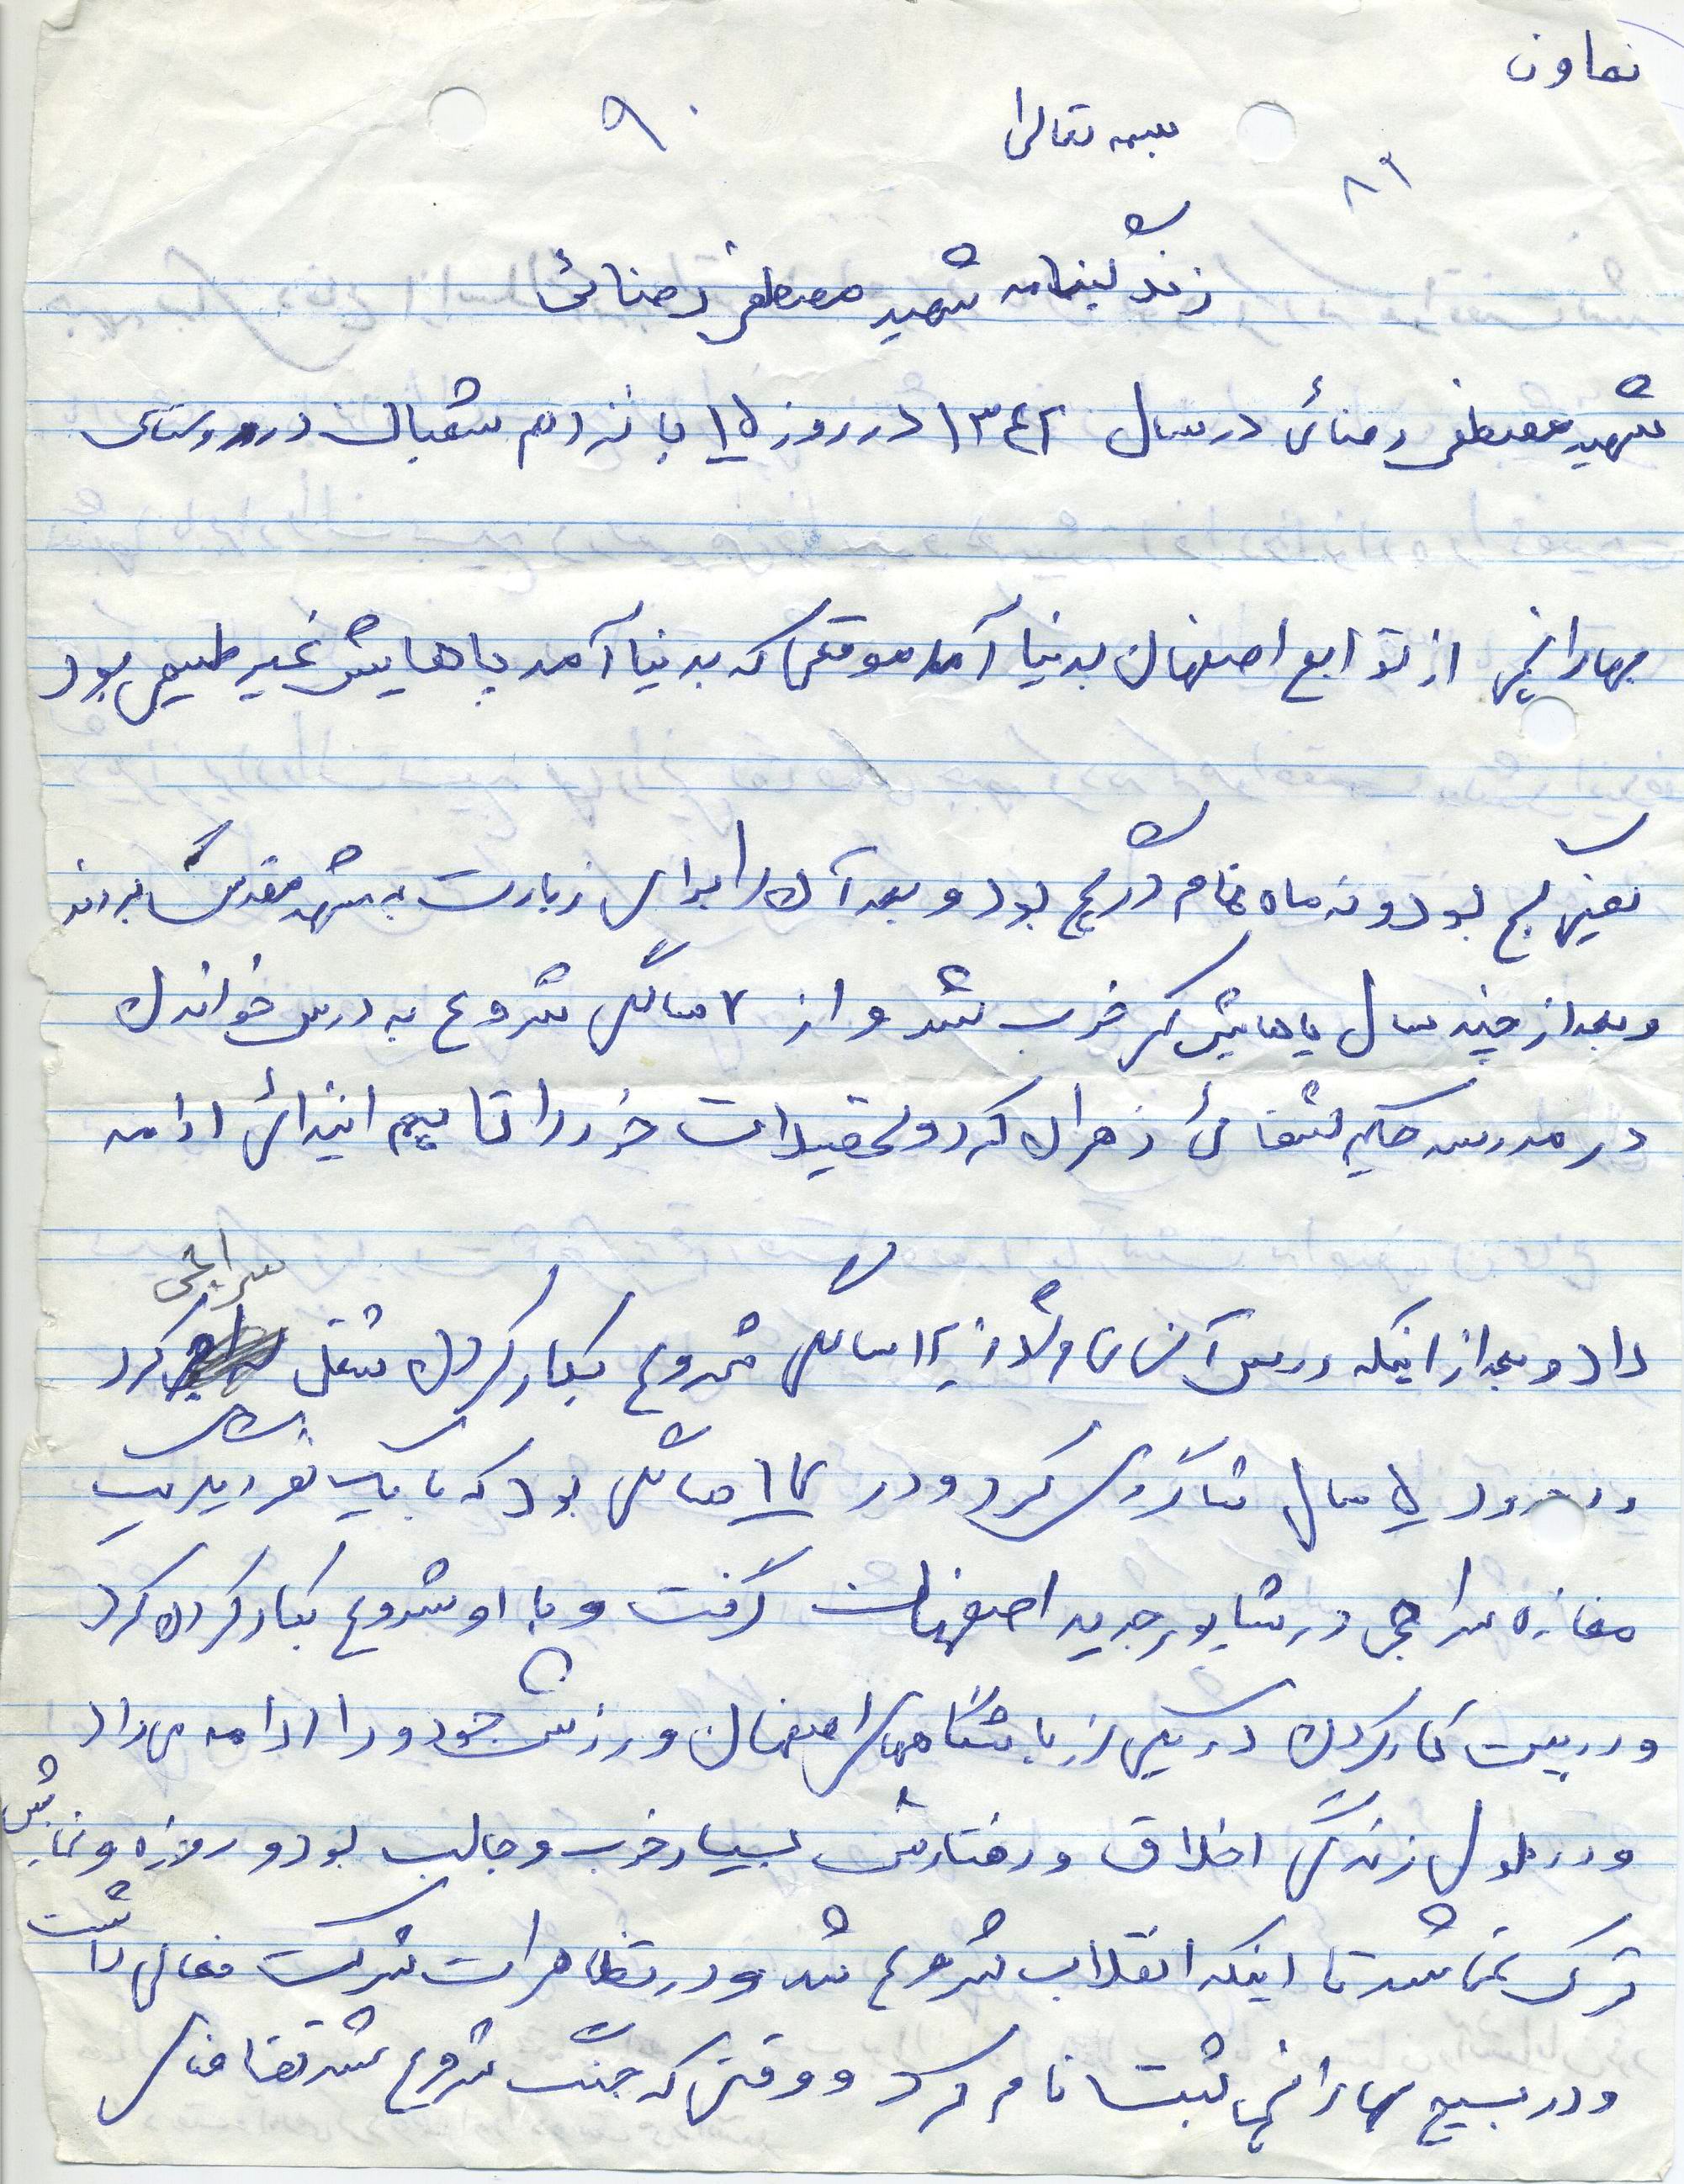 تعاون
بسمه تعالی
۹۰
۸۹
زندگینامه شهید مصطفی رضائی
شهید مصطفی رضائی در سال ۱۳۴۲ در روز ۱۵ پانزدهم شعبان در روستای
بهارانچی از توابع اصفهان بدنیا آمد موقعی که بدنیا آمد پاهایش غیر طبیعی بود
یعنی کج بود و نه ماه تمام در گچ بود و بعد آن را برای زیارت به مشهد مقدس بردند
و بعد از چند سال پاهایش خوب شد و از ۷ سالگی شروع به درس خواندن
در مدرسه حکیم شفائی زهران کرد و تحصیلات خود را تا پنجم ابتدائی ادامه
داد و بعد از اینکه درس از ۱۲ سالگی شروع بکار کردن شغل سراجی کرد
۵ سال شاگردی کرد و در ۱۷ سالگی بود که با یک نفر دیگر یک
مغازه سراجی در شاپور جدید اصفهان گرفت و با او شروع بکار کردن کرد
و در بین کار کردن در یکی از باشگاههای اصفهان ورزش خود را ادامه می داد
و در طول زندگی اخلاق و رفتارش بسیار خوب و جالب بود و روزه و نمازش
ترک نمی شد تا اینکه انقلاب شروع شد و در تظاهرات شرکت فعالی داشت
و در بسیج بهارانچی ثبت نام کرد و وقتی که جنگ شروع شد تقاضای